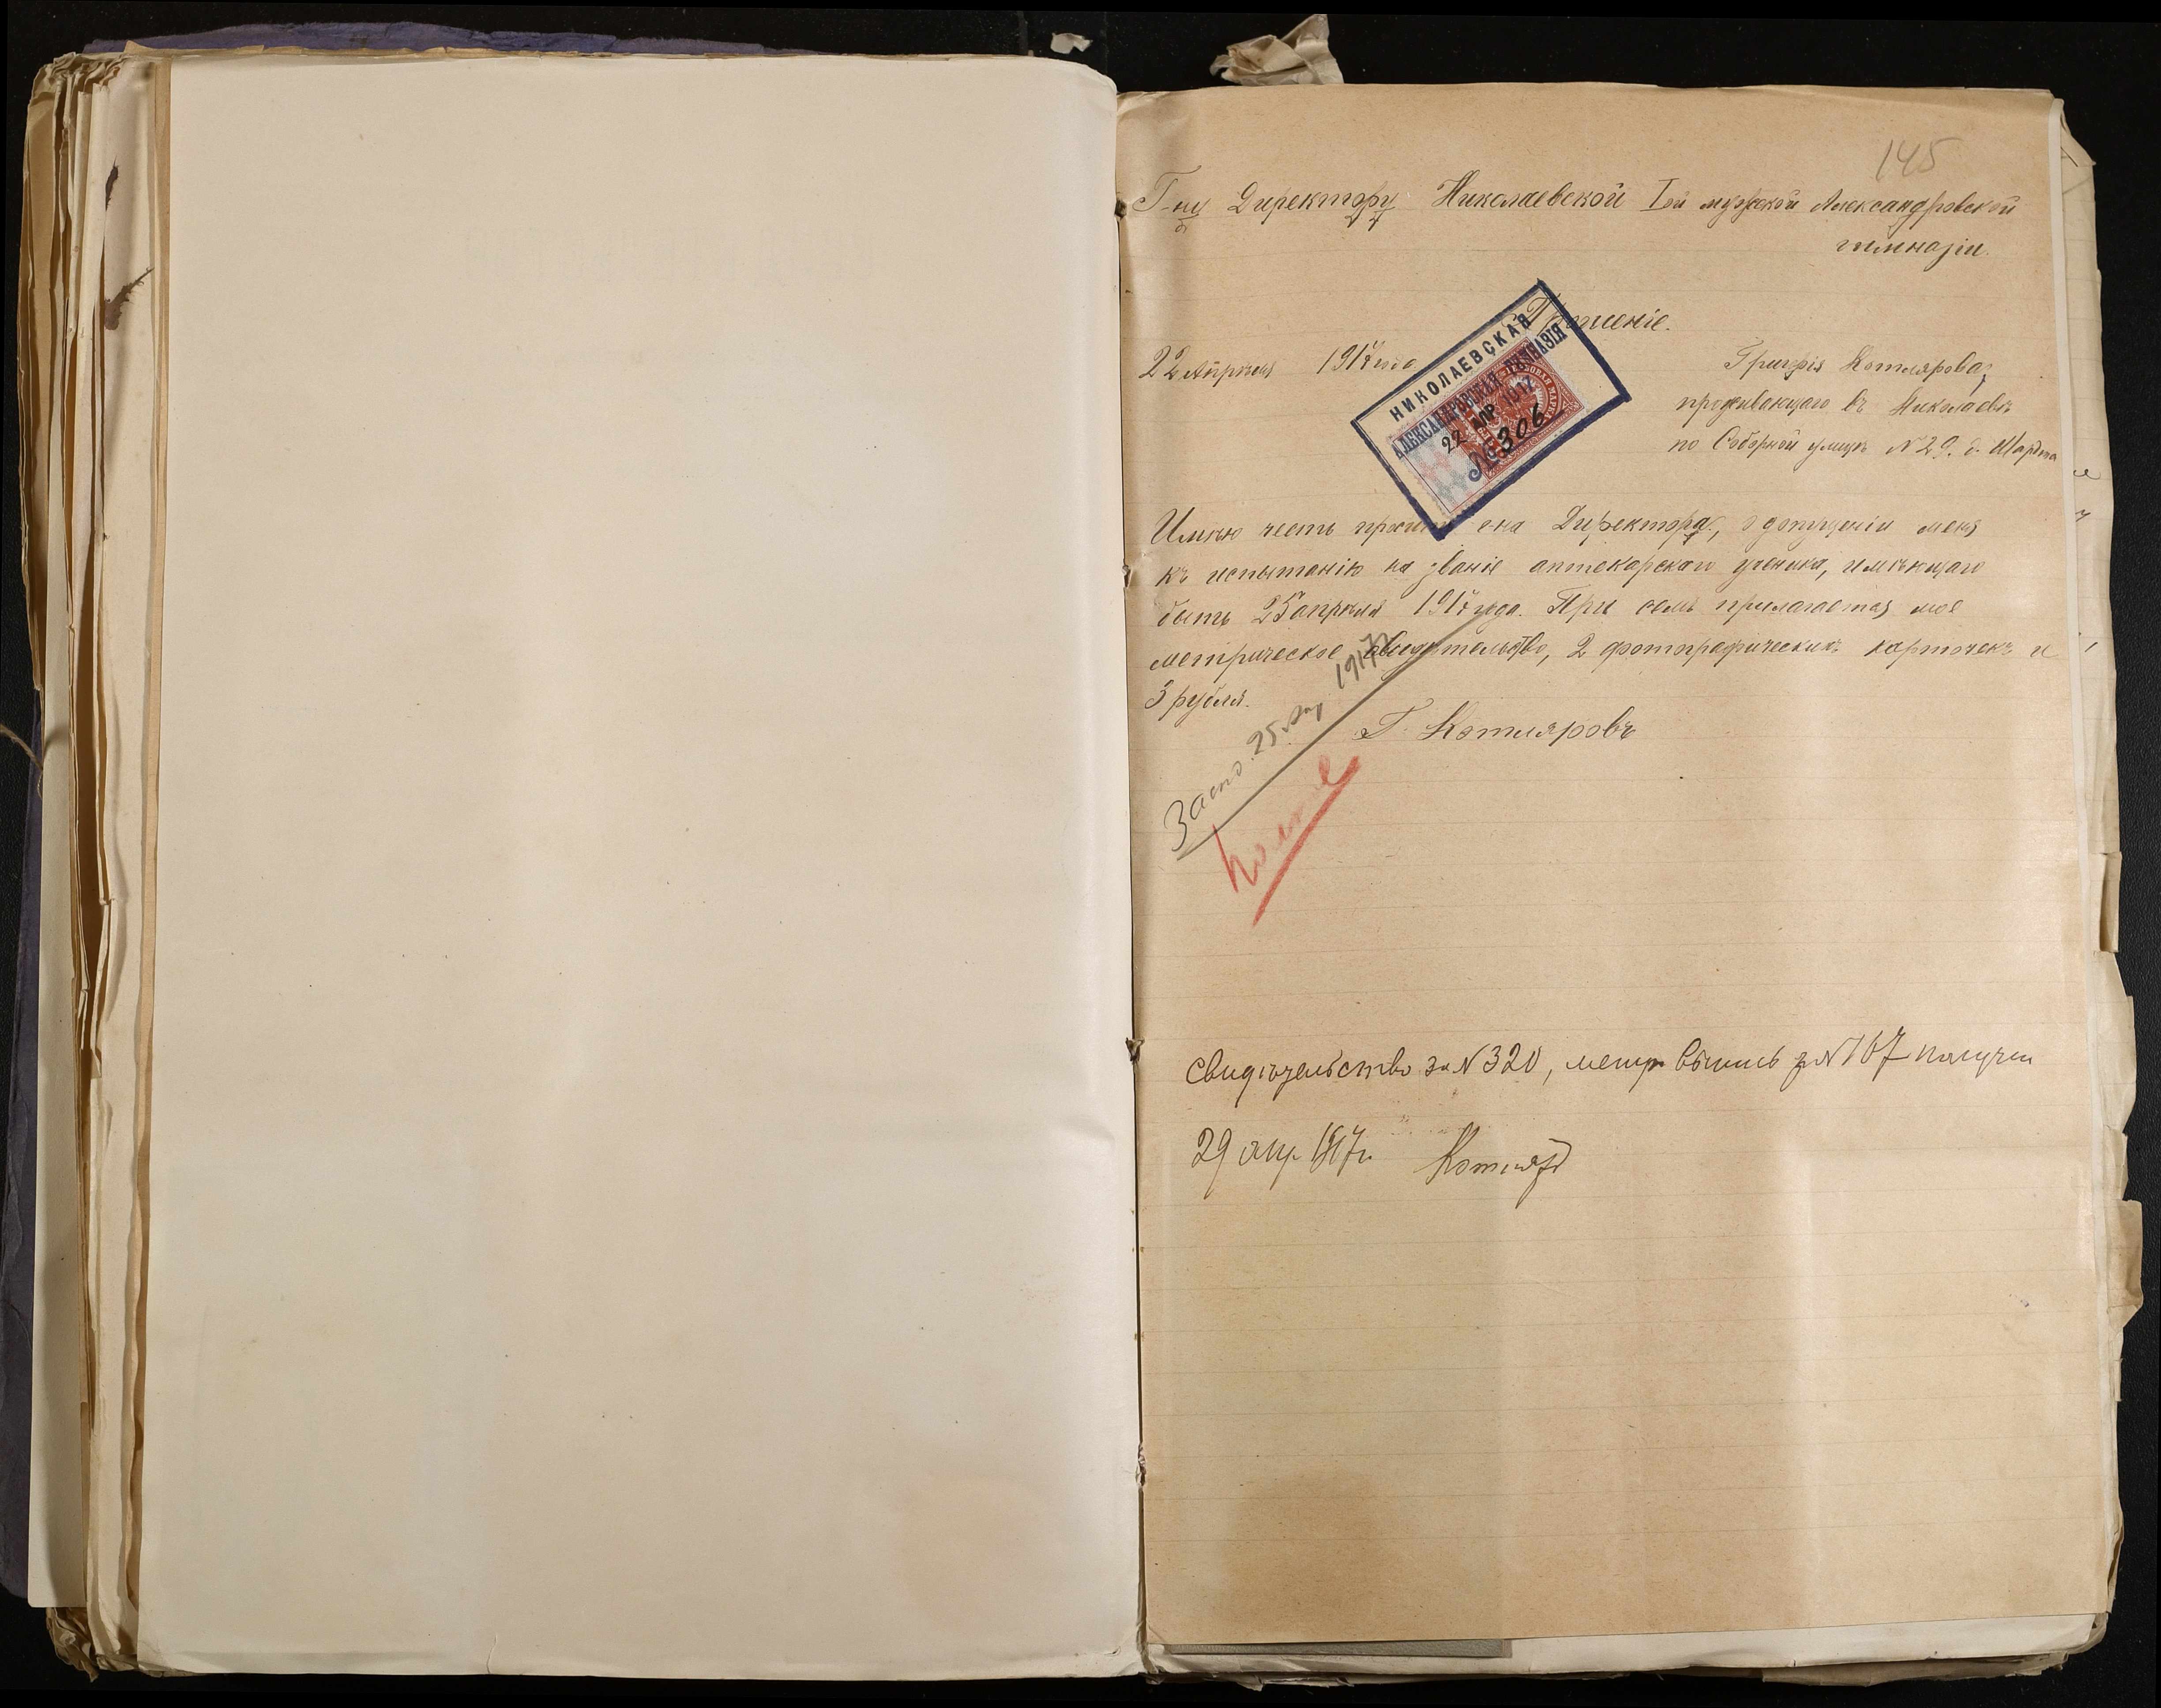 145
Г-ну Директору Николаевской Iой мужской Александровской
гимназіи.
Прошеніе.
22 Апрѣля 1917 года
НИКОЛАЕВСКАЯ
АЛЕКСАНДРОВСКАЯ ГИМНАЗІЯ
22 АПР 1917
№ 306
Григорія Котлярова,
проживающаго въ Николаевѣ
по Соборной улицѣ № 29. д.
Имѣю честь просить Директора, о допущеніи меня
къ испытанію на званіе аптекарскаго ученика, имѣющаго
быть 25 апрѣля 1917 года. При семъ прилагается мое
метрическое свидѣтельство, 2 фотографическихъ карточекъ и
3 рубля.
Г. Котляровъ
25 1917
свидѣтельство за № 320, метр. выпись за № 167 получил
29 апр 1917 г.